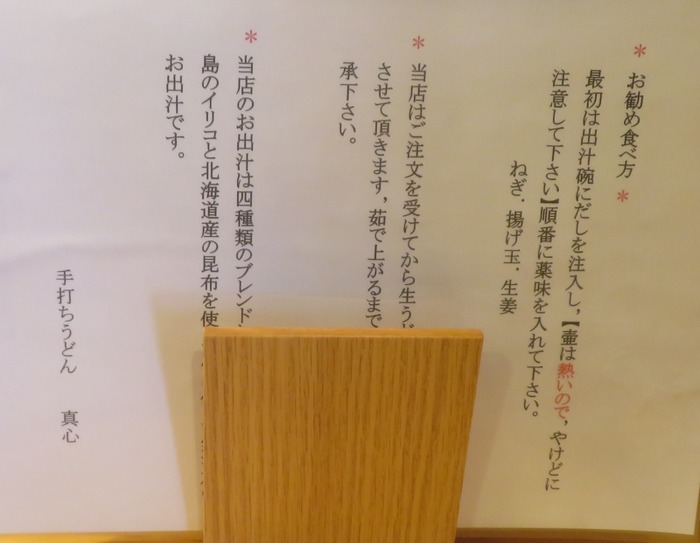 * お勧め食べ方 *
最初は出汁碗にだしを注入し，【壷は熱いので，やけどに
注意して下さい】順番に薬味を入れて下さい。
ねぎ．揚げ玉．生姜
* 当店はご注文を受けてから生う
させて頂きます，茹で上がるまで
承下さい。
* 当店のお出汁は四種類のブレンド
島のイリコと北海道産の昆布を使
お出汁です。
手打ちうどん 真心